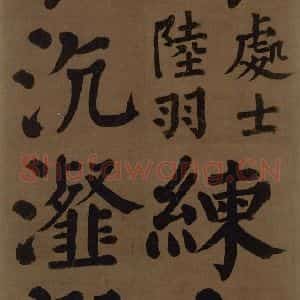 處士
陸羽
練
沉瀣
Shufawang.CN